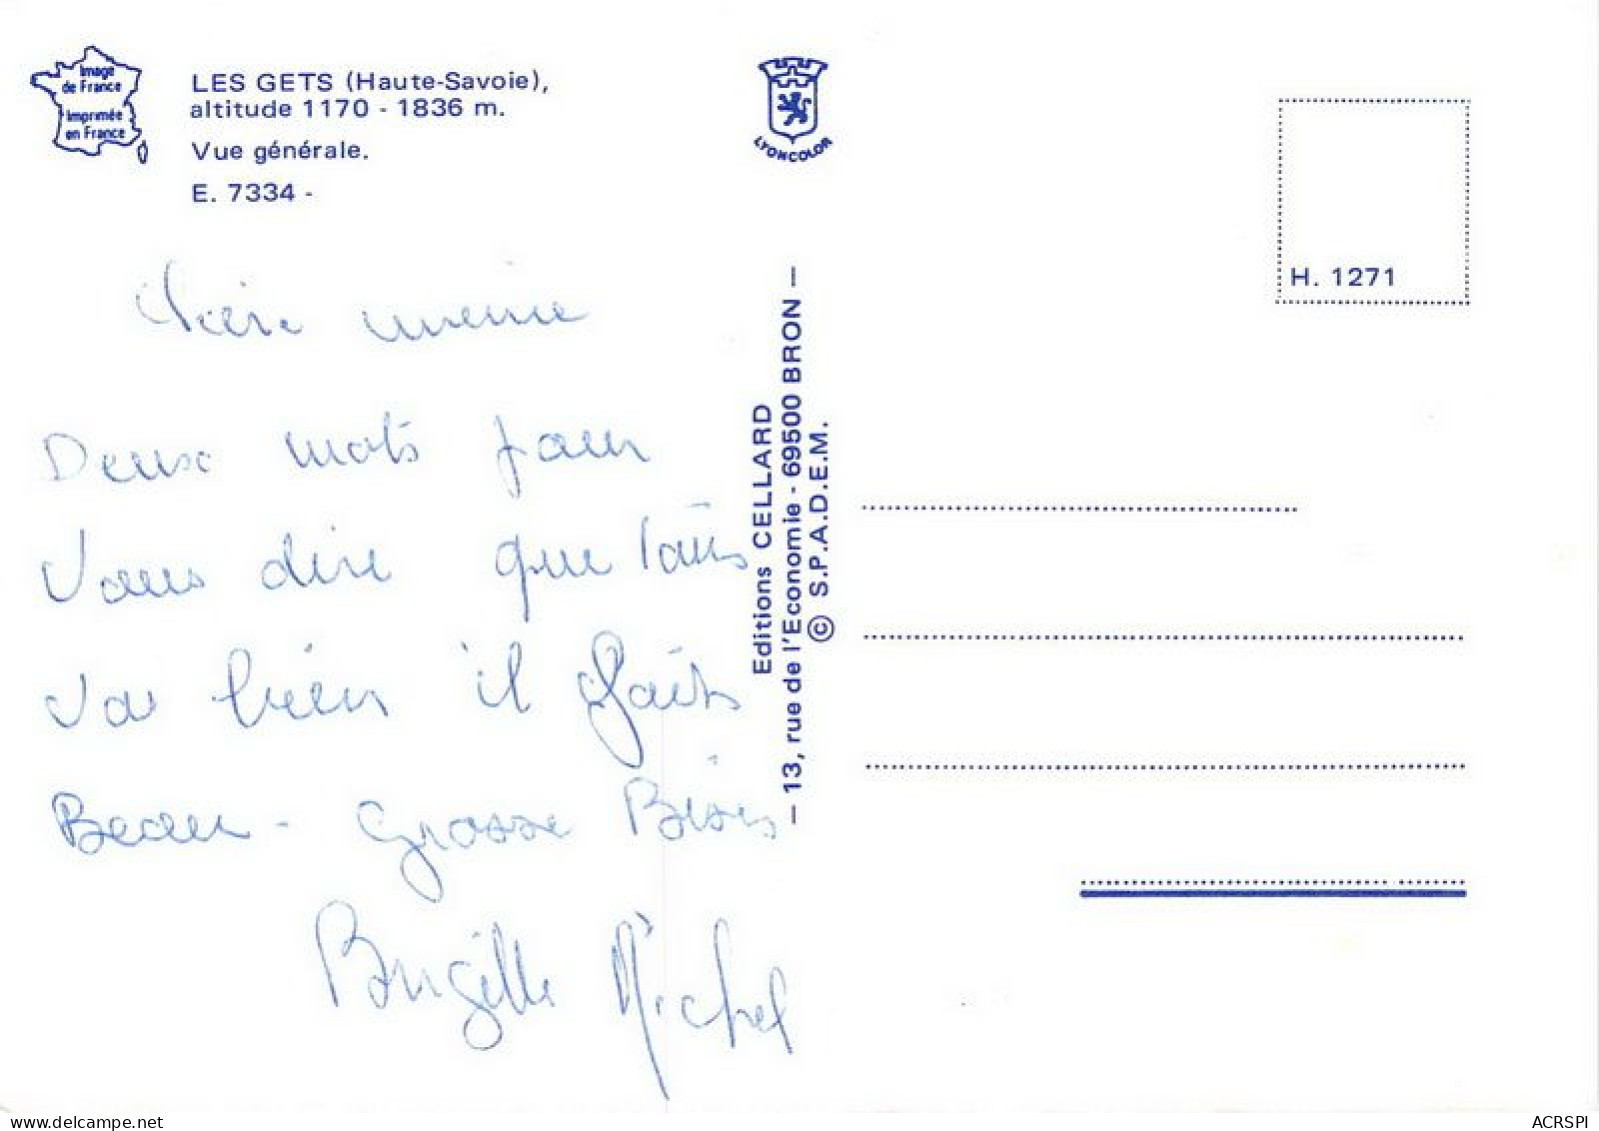 Image
de France
Imprimée
en France
LES GETS (Haute-Savoie),
altitude 1170 - 1836 m.
Vue générale.
E. 7334 -
LYONCOLOR
H. 1271
Editions CELLARD
— 13, rue de l'Economie - 69500 BRON —
© S.P.A.D.E.M.
Chère
Deux mots pour
Vous dire que tous
Va bien il fait
Beau - Grosse Bises
Brigitte Michel
www.delcampe.net
ACRSPI